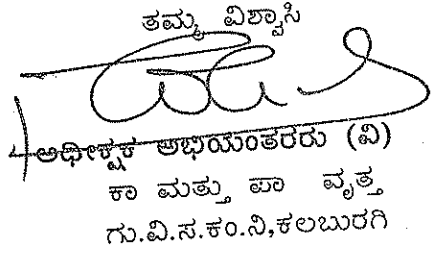 ತಮ್ಮ ವಿಶ್ವಾಸಿ
ಅಧೀಕ್ಷಕ ಅಭಿಯಂತರರು (ವಿ)
ಕಾ ಮತ್ತು ಪಾ ವೃತ್ತ
ಗು.ವಿ.ಸ.ಕಂ.ನಿ,ಕಲಬುರಗಿ